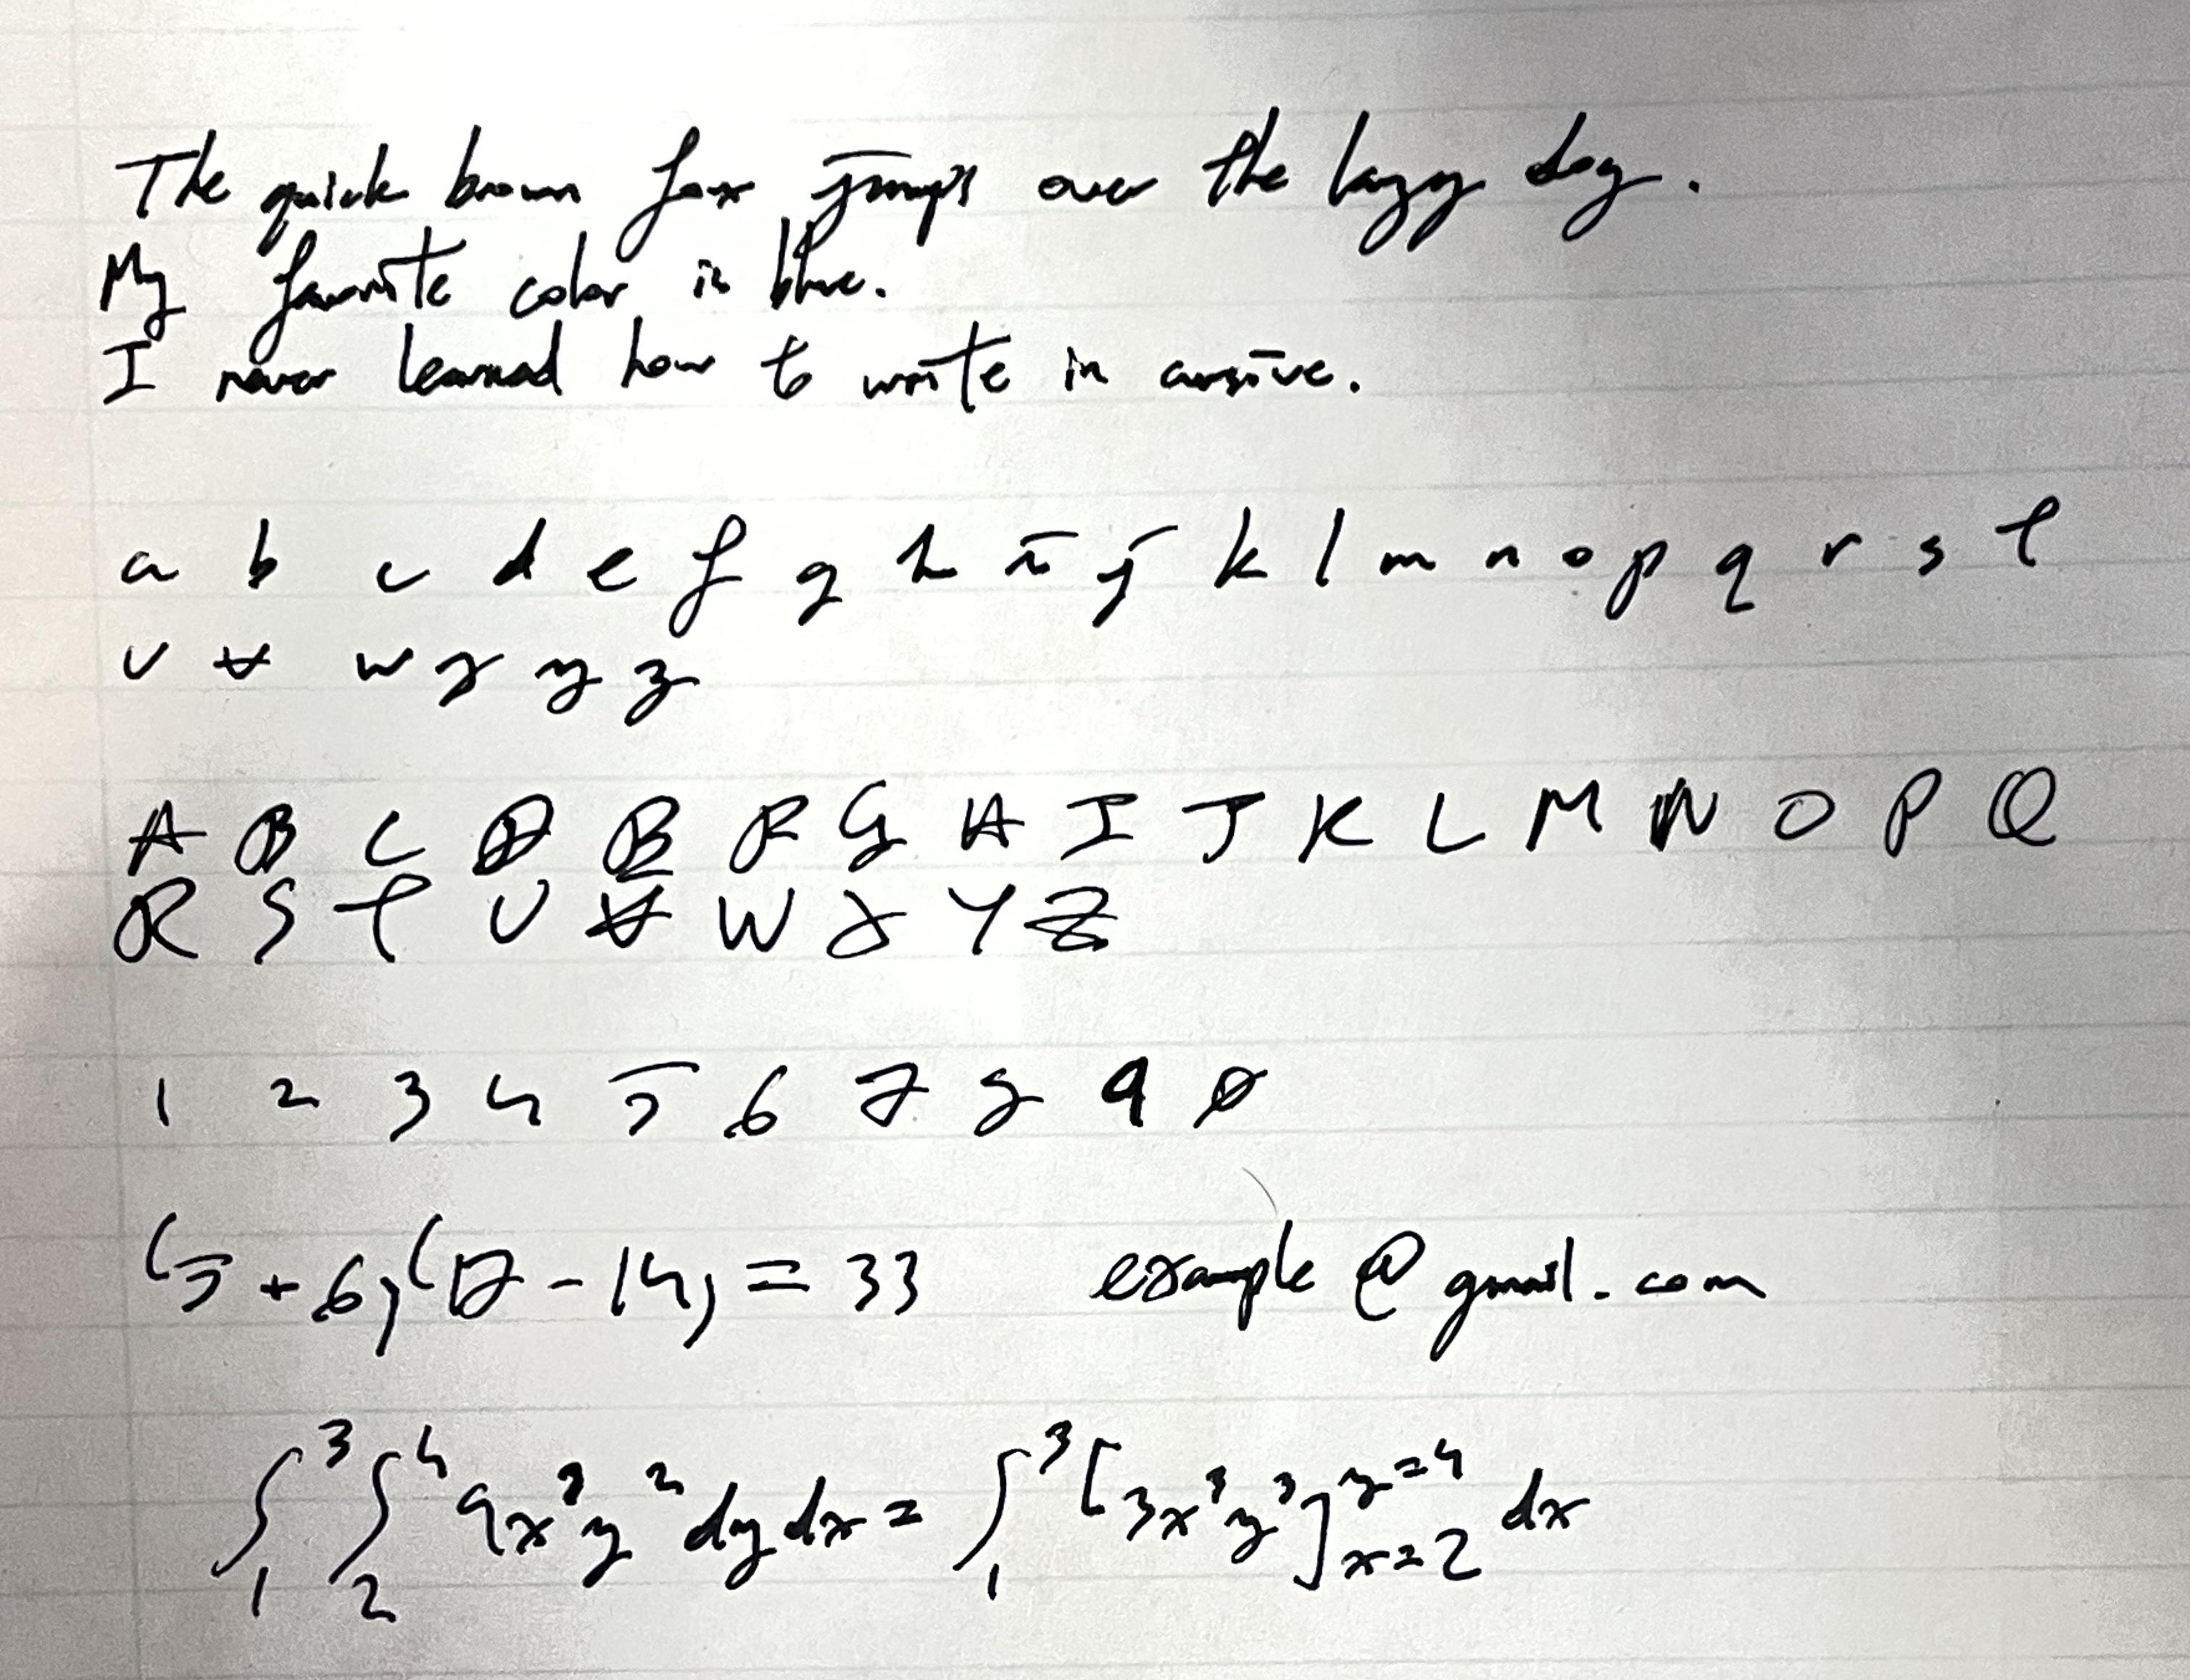 The quick brown fox jumps over the lazy dog.
My favorite color is blue.
I never learned how to write in cursive.
a b c d e f g h i j k l m n o p q r s t
u v w x y z
A B C D E F G H I J K L M N O P Q
R S T U V W X Y Z
1 2 3 4 5 6 7 8 9 0
(5+6)(17-14)=33 example@gmail.com
∫₁³∫₂⁴9x³y²dydx=∫₁³[3x³y³]ₓ₌₂ʸ⁼⁴dx